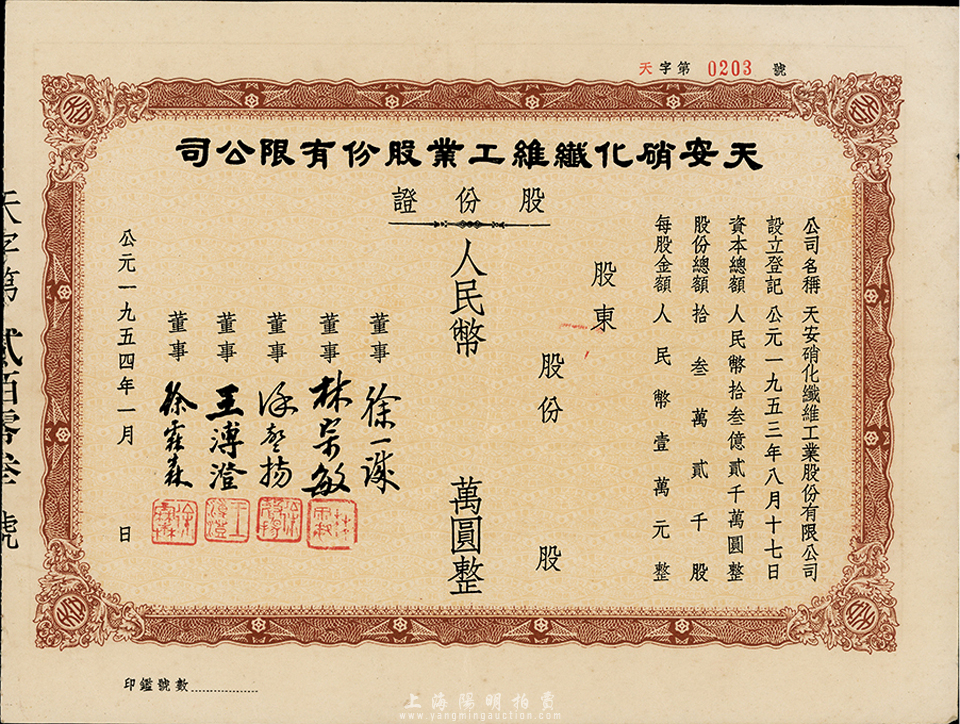 天字第 0203 號
天安硝化纖維工業股份有限公司
股份證
公司名稱 天安硝化纖維工業股份有限公司
設立登記 公元一九五三年八月十七日
資本總額 人民幣拾叁億貳千萬圓整
股份總額 拾叁萬貳千股
每股金額 人民幣壹萬元整
股東
股份 股
人民幣 萬圓整
董事 徐一
董事 林
董事 徐
董事 王溥澄
董事 徐霖森
公元一九五四年一月 日
天字第 貳佰零叁 號
印鑑號數
上海陽明拍賣
www.yangmingauction.com